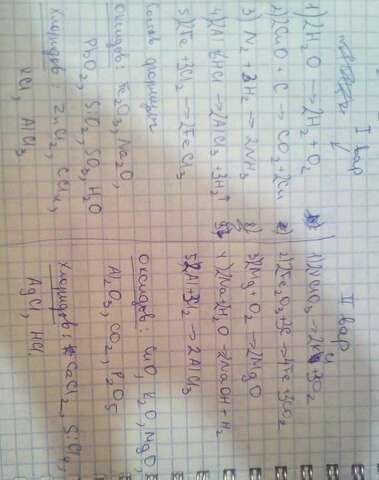 I вар
1) 2H₂O → 2H₂ + O₂
2) 2CuO + C → CO₂ + 2Cu
3) N₂ + 3H₂ → 2NH₃
4) 2Al 6HCl → 2AlCl₃ + 3H₂↑
5) 2Fe + 3Cl₂ → 2FeCl₃
формулы
Оксидов: Fe₂O₃, Na₂O,
PbO₂, SiO₂, SO₃, H₂O
Хлоридов: ZnCl₂, CCl₄,
KCl, AlCl₃
II вар
2) 2Fe₂O₃ + 3C → 4Fe + 3CO₂
3) 2Mg + O₂ → 2MgO
4) 2Na + 2H₂O → 2NaOH + H₂
→ 2AlCl₃
Оксидов: CuO, K₂O, MgO,
Al₂O₃, CO₂, P₂O₅
Хлоридов: CaCl₂, SiCl₄,
AgCl, HCl